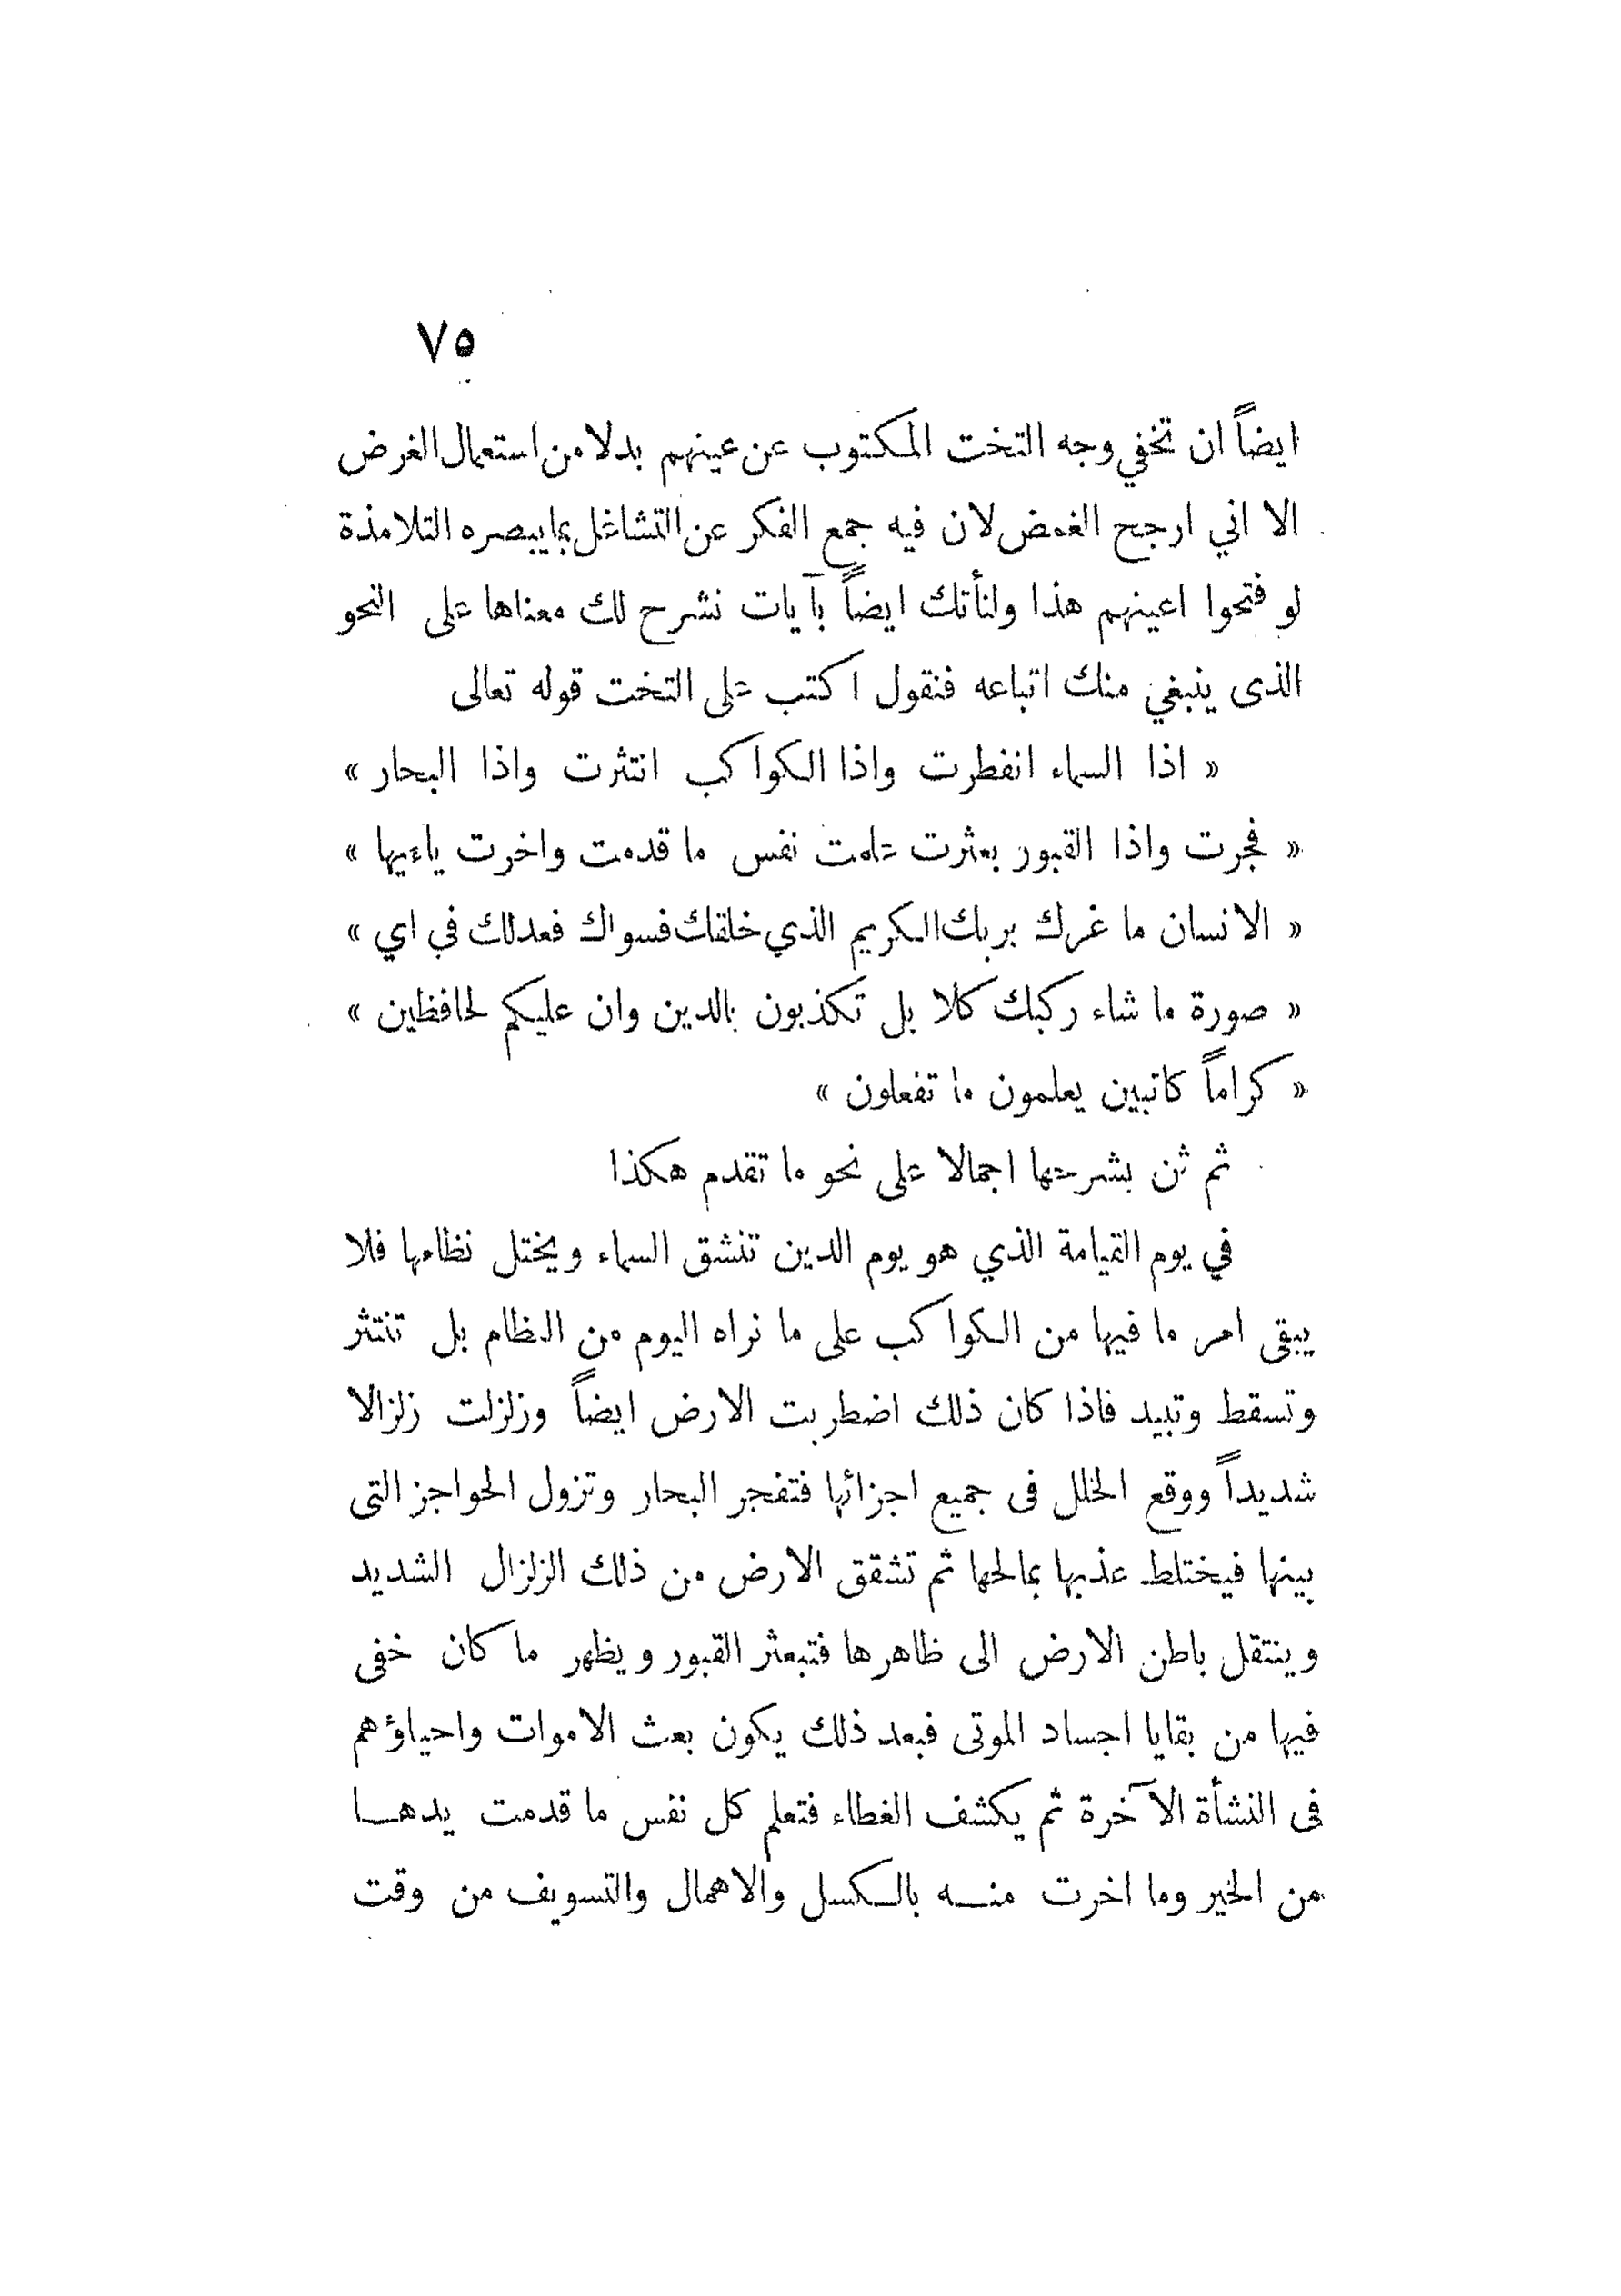 ٧٥
ايضاً ان تخفي وجه التخت المكتوب عن عينهم بدلا من استعمال الغرض
الا اني ارجح الغمض لان فيه جمع الفكر عن التشاغل بما يبصره التلامذة
لو فتحوا اعينهم هذا ولنأتك ايضاً بآيات نشرح لك معناها على النحو
الذى ينبغي منك اتباعه فنقول اكتب على التخت قوله تعالى
« اذا السماء انفطرت واذا الكواكب انتثرت واذا البحار »
« فجرت واذا القبور بعثرت علمت نفس ما قدمت واخرت ياءيها »
« الانسان ما غرك بربك الكريم الذي خلقك فسواك فعدلك في اي »
« صورة ما شاء ركبك كلا بل تكذبون بالدين وان عليكم لحافظين »
« كراماً كاتبين يعلمون ما تفعلون »
ثم ثن بشرحها اجمالا على نحو ما تقدم هكذا
في يوم القيامة الذي هو يوم الدين تنشق السماء ويختل نظامها فلا
يبقى امر ما فيها من الكواكب على ما نراه اليوم من النظام بل تنتثر
وتسقط وتبيد فاذا كان ذلك اضطربت الارض ايضاً وزلزلت زلزالا
شديداً ووقع الخلل فى جميع اجزائها فتفجر البحار وتزول الحواجز التى
بينها فيختلط عذبها بمالحها ثم تشقق الارض من ذلك الزلزال الشديد
وينتقل باطن الارض الى ظاهرها فتبعثر القبور ويظهر ما كان خفى
فيها من بقايا اجساد الموتى فبعد ذلك يكون بعث الاموات واحياؤهم
فى النشأة الآخرة ثم يكشف الغطاء فتعلم كل نفس ما قدمت يدهـا
من الخير وما اخرت منـه بالكسل والاهمال والتسويف من وقت